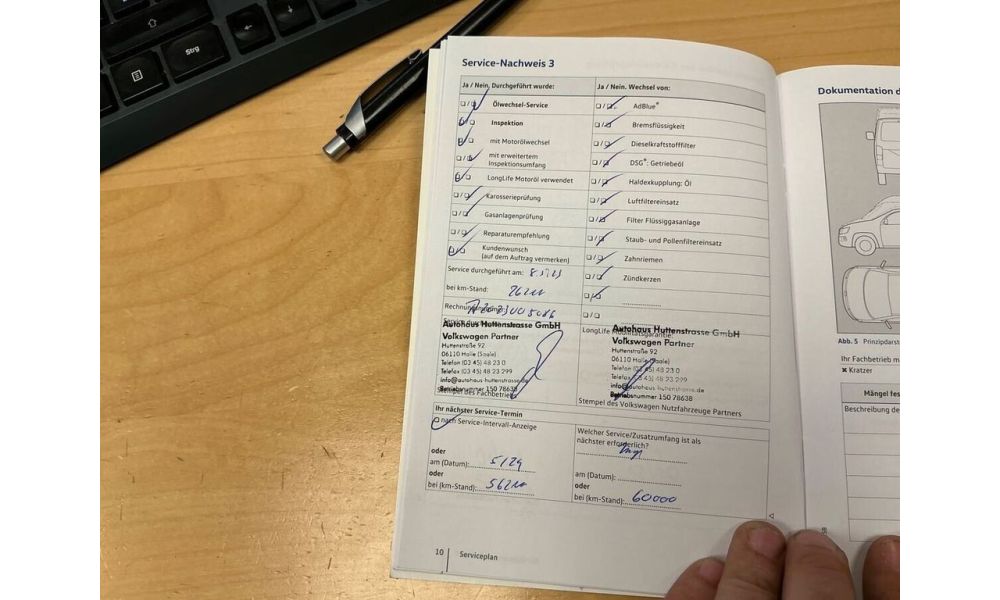 Strg
Service-Nachweis 3
Ja / Nein, Durchgeführt wurde:
Ölwechsel-Service
Inspektion
mit Motorölwechsel
mit erweitertem
Inspektionsumfang
LongLife Motoröl verwendet
Karosserieprüfung
Gasanlagenprüfung
Reparaturempfehlung
Kundenwunsch
(auf dem Auftrag vermerken)
Service durchgeführt am:
bei km-Stand:
Autohaus Huttenstrasse GmbH
Volkswagen Partner
Huttenstraße 92
06110 Halle (Saale)
Telefon (03 45) 48 23 0
Telefax (03 45) 48 23 299
info@autohaus-huttenstrasse.de
Betriebsnummer 150 78638
Stempel des Fachbetriebs
Ja / Nein. Wechsel von:
AdBlue®
Bremsflüssigkeit
Dieselkraftstofffilter
DSG®: Getriebeöl
Haldexkupplung: Öl
Luftfiltereinsatz
Filter Flüssiggasanlage
Staub- und Pollenfiltereinsatz
Zahnriemen
Zündkerzen
LongLife Mobilitätsgarantie
Autohaus Huttenstrasse GmbH
Volkswagen Partner
Huttenstraße 92
06110 Halle (Saale)
Telefon (03 45) 48 23 0
Telefax (03 45) 48 23 299
info@autohaus-huttenstrasse.de
Betriebsnummer 150 78638
Stempel des Volkswagen Nutzfahrzeuge Partners
Ihr nächster Service-Termin
nach Service-Intervall-Anzeige
oder
am (Datum): 5/24
oder
bei (km-Stand):
Welcher Service/Zusatzumfang ist als
nächster erforderlich?
am (Datum):
oder
bei (km-Stand): 60000
10 Serviceplan
Dokumentation d
Abb. 5 Prinzipdarst
Ihr Fachbetrieb m
✖ Kratzer
Mängel fes
Beschreibung de